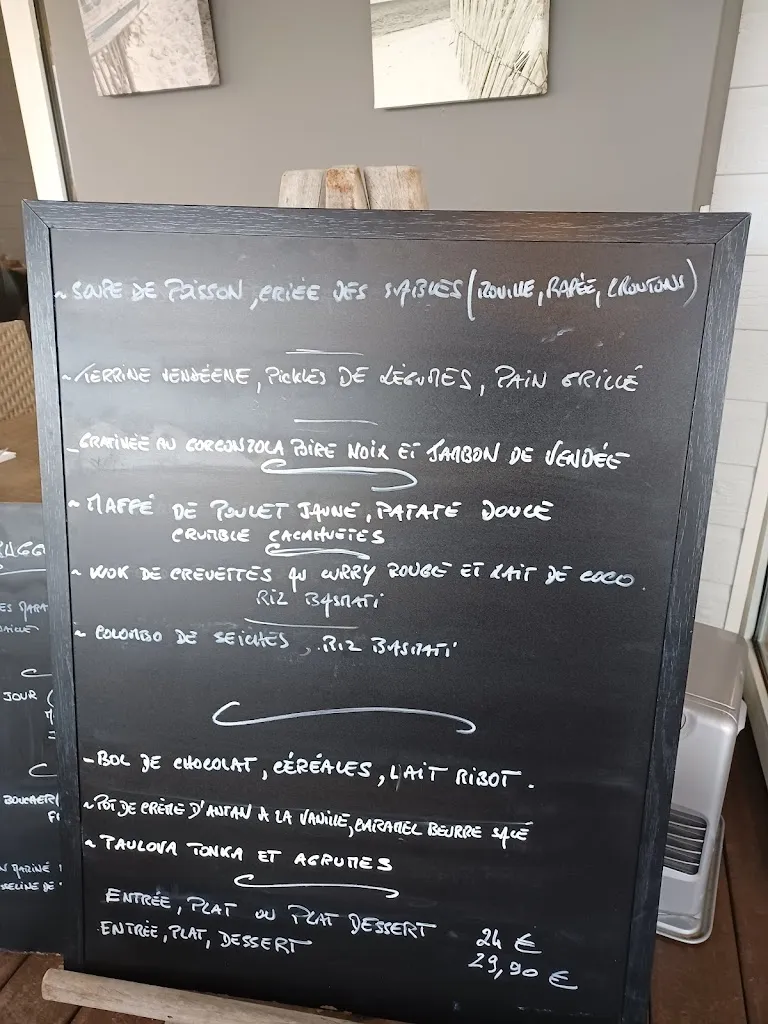 ~ SOUPE DE POISSON, CRIÉE DES SABLES (ROUILLE, RAPÉE, CROUTONS)
~ TERRINE VENDÉENE, PICKLES DE LÉGUMES, PAIN GRILLÉ
- GRATINÉE AU GORGONZOLA POIRE NOIX ET JAMBON DE VENDÉE
~ MAFFÉ DE POULET JAUNE, PATATE DOUCE
CRUMBLE CACAHUETES
~ WOK DE CREVETTES AU CURRY ROUGE ET LAIT DE COCO.
RIZ BASMATI
~ COLOMBO DE SEICHES, RIZ BASMATI
- BOL DE CHOCOLAT, CÉRÉALES, LAIT RIBOT.
~ POT DE CRÈME D'ANTAN A LA VANILLE, CARAMEL BEURRE SALÉ
~ PAVLOVA TONKA ET AGRUMES
ENTRÉE, PLAT OU PLAT DESSERT 24 €
ENTRÉE, PLAT, DESSERT 29,90 €
JOUR